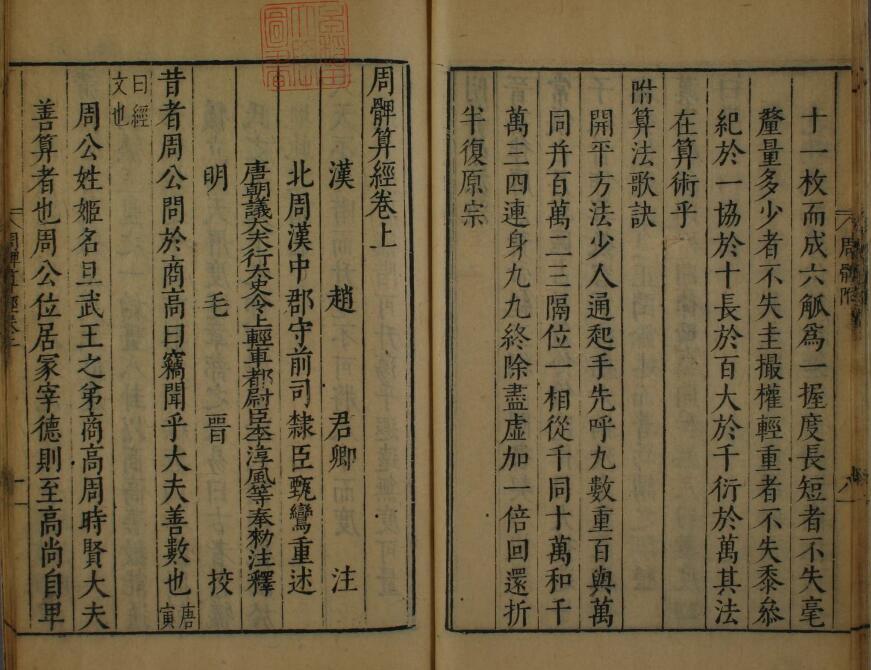 十一枚而成六觚為一握度長短者不失毫
釐量多少者不失圭撮權輕重者不失黍絫
紀於一協於十長於百大於千衍於萬其法
在算術乎
附算法歌訣
子開平方法少人通起手先呼九數重百與萬
同并百萬二三隔位一相從千同十萬和千
萬三四連身九九終除盡虛加一倍回還折
半復原宗
周髀附
周髀算經卷上
漢 趙 君卿 注
北周漢中郡守前司隸臣甄鸞重述
唐朝議大夫行太史令上輕車都尉臣李淳風等奉勑注釋
明 毛 晉 校
昔者周公問於商高曰竊聞乎大夫善數也唐寅
曰經文也
周公姓姬名旦武王之弟商高周時賢大夫
善算者也周公位居冡宰德則至高尚自卑
周髀算經卷上